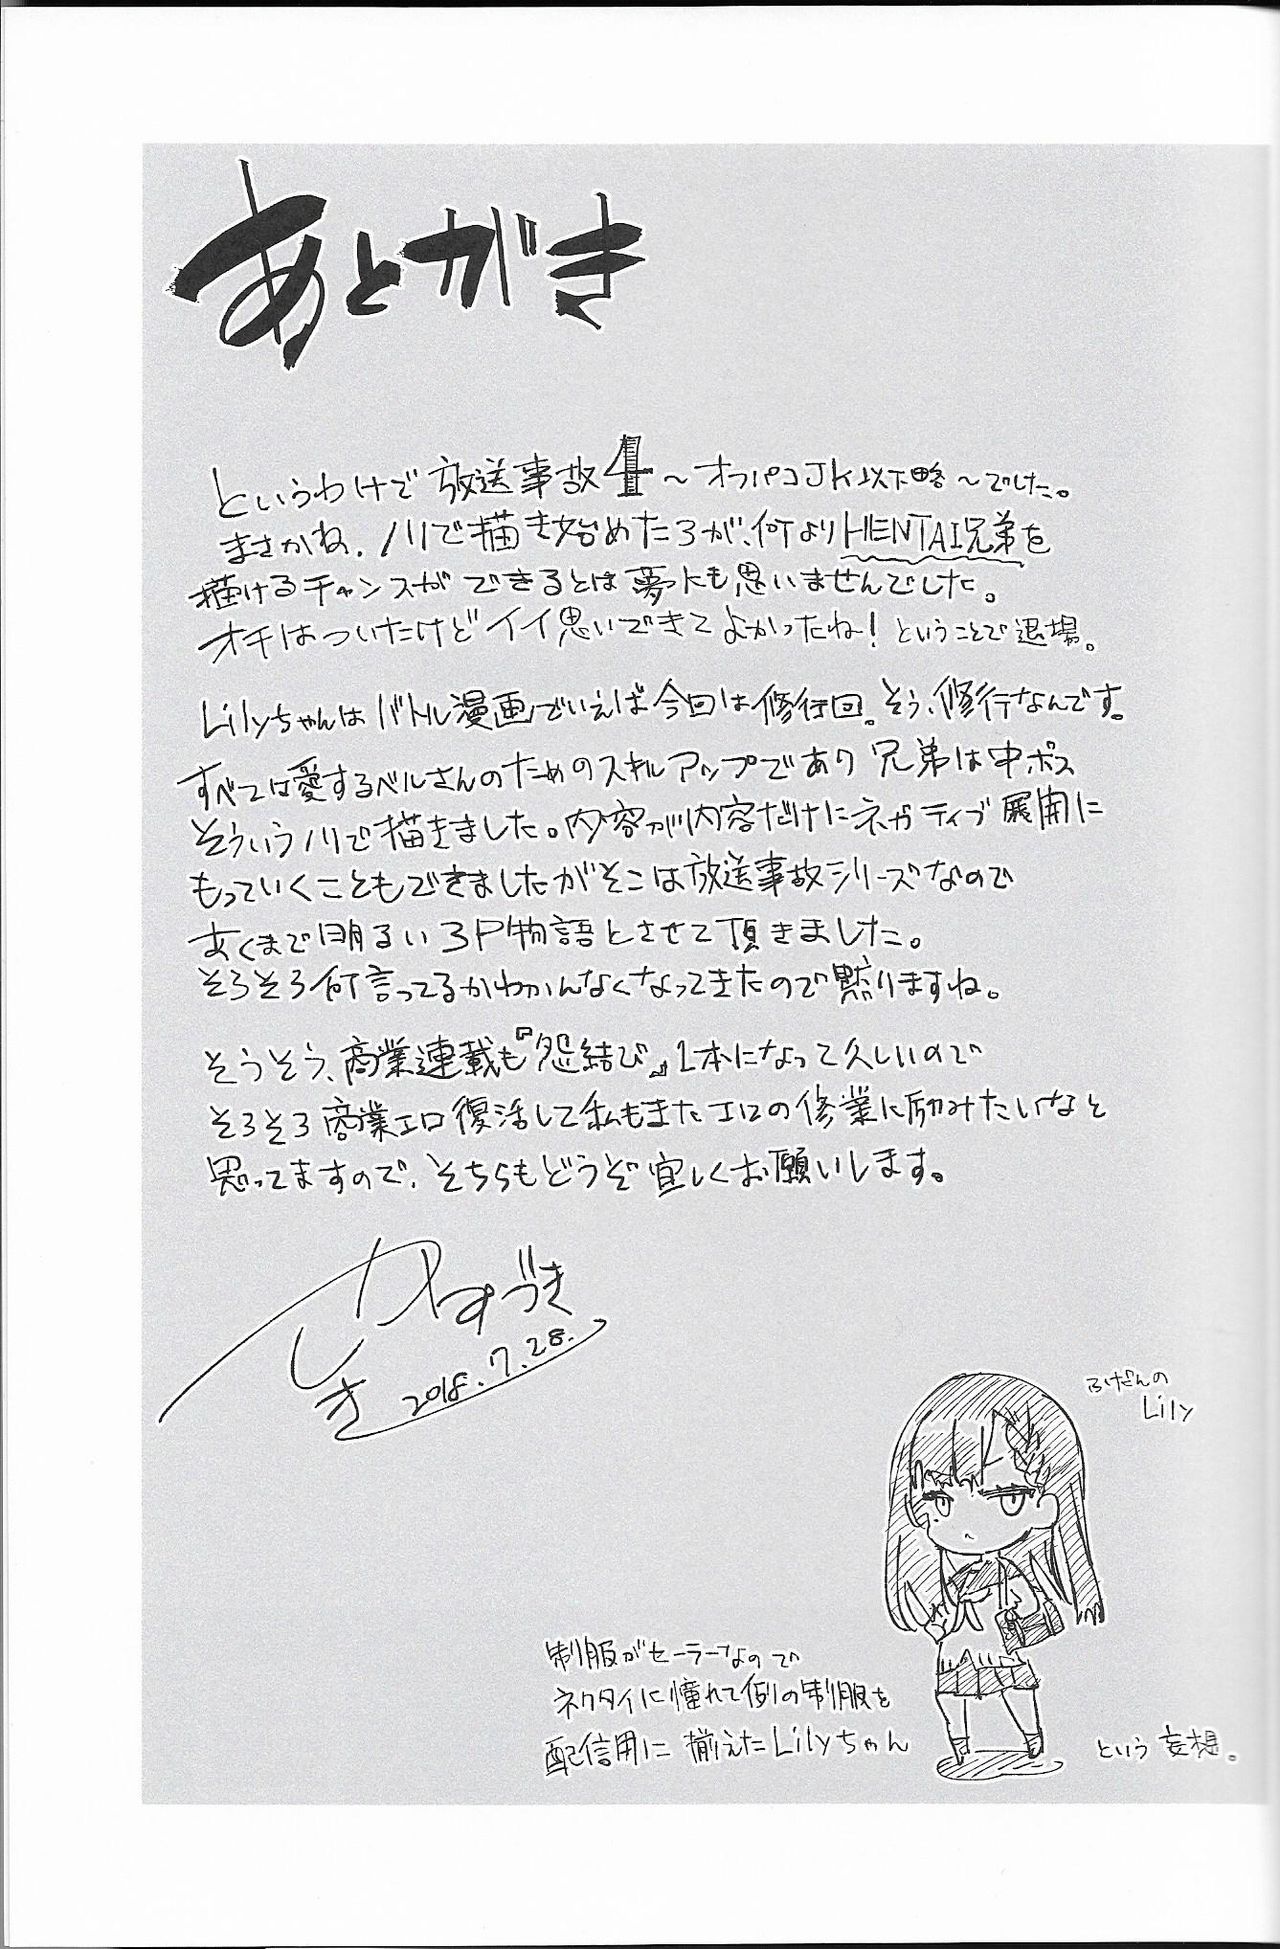 あとがき
というわけで 放送事故4 ～オフパコJK以下略～でした。
まさかね、ノリで描き始めた3が、何よりHENTAI兄弟を
描けるチャンスができるとは夢にも思いませんでした。
オチはついたけどイイ思いできてよかったね！ということで退場。
Lilyちゃんはバトル漫画でいえば今回は修行回。そう、修行なんです。
すべては愛するベルさんのためのスキルアップであり 兄弟は中ボス
そういうノリで描きました。内容が内容だけにネガティブ展開に
もっていくこともできましたがそこは放送事故シリーズなので
あくまで明るい3P物語とさせて頂きました。
そろそろ何言ってるかわかんなくなってきたので黙りますね。
そうそう、商業連載も『怨結び』1本になって久しいので
そろそろ商業エロ復活して私もまたエロの修業に励みたいなと
思ってますので、そちらもどうぞ宜しくお願いします。
かすづき
しき 2018.7.28.
ふだんの
Lily
制服がセーラーなので
ネクタイに憧れて例の制服を
配信用に揃えたLilyちゃん
という妄想。